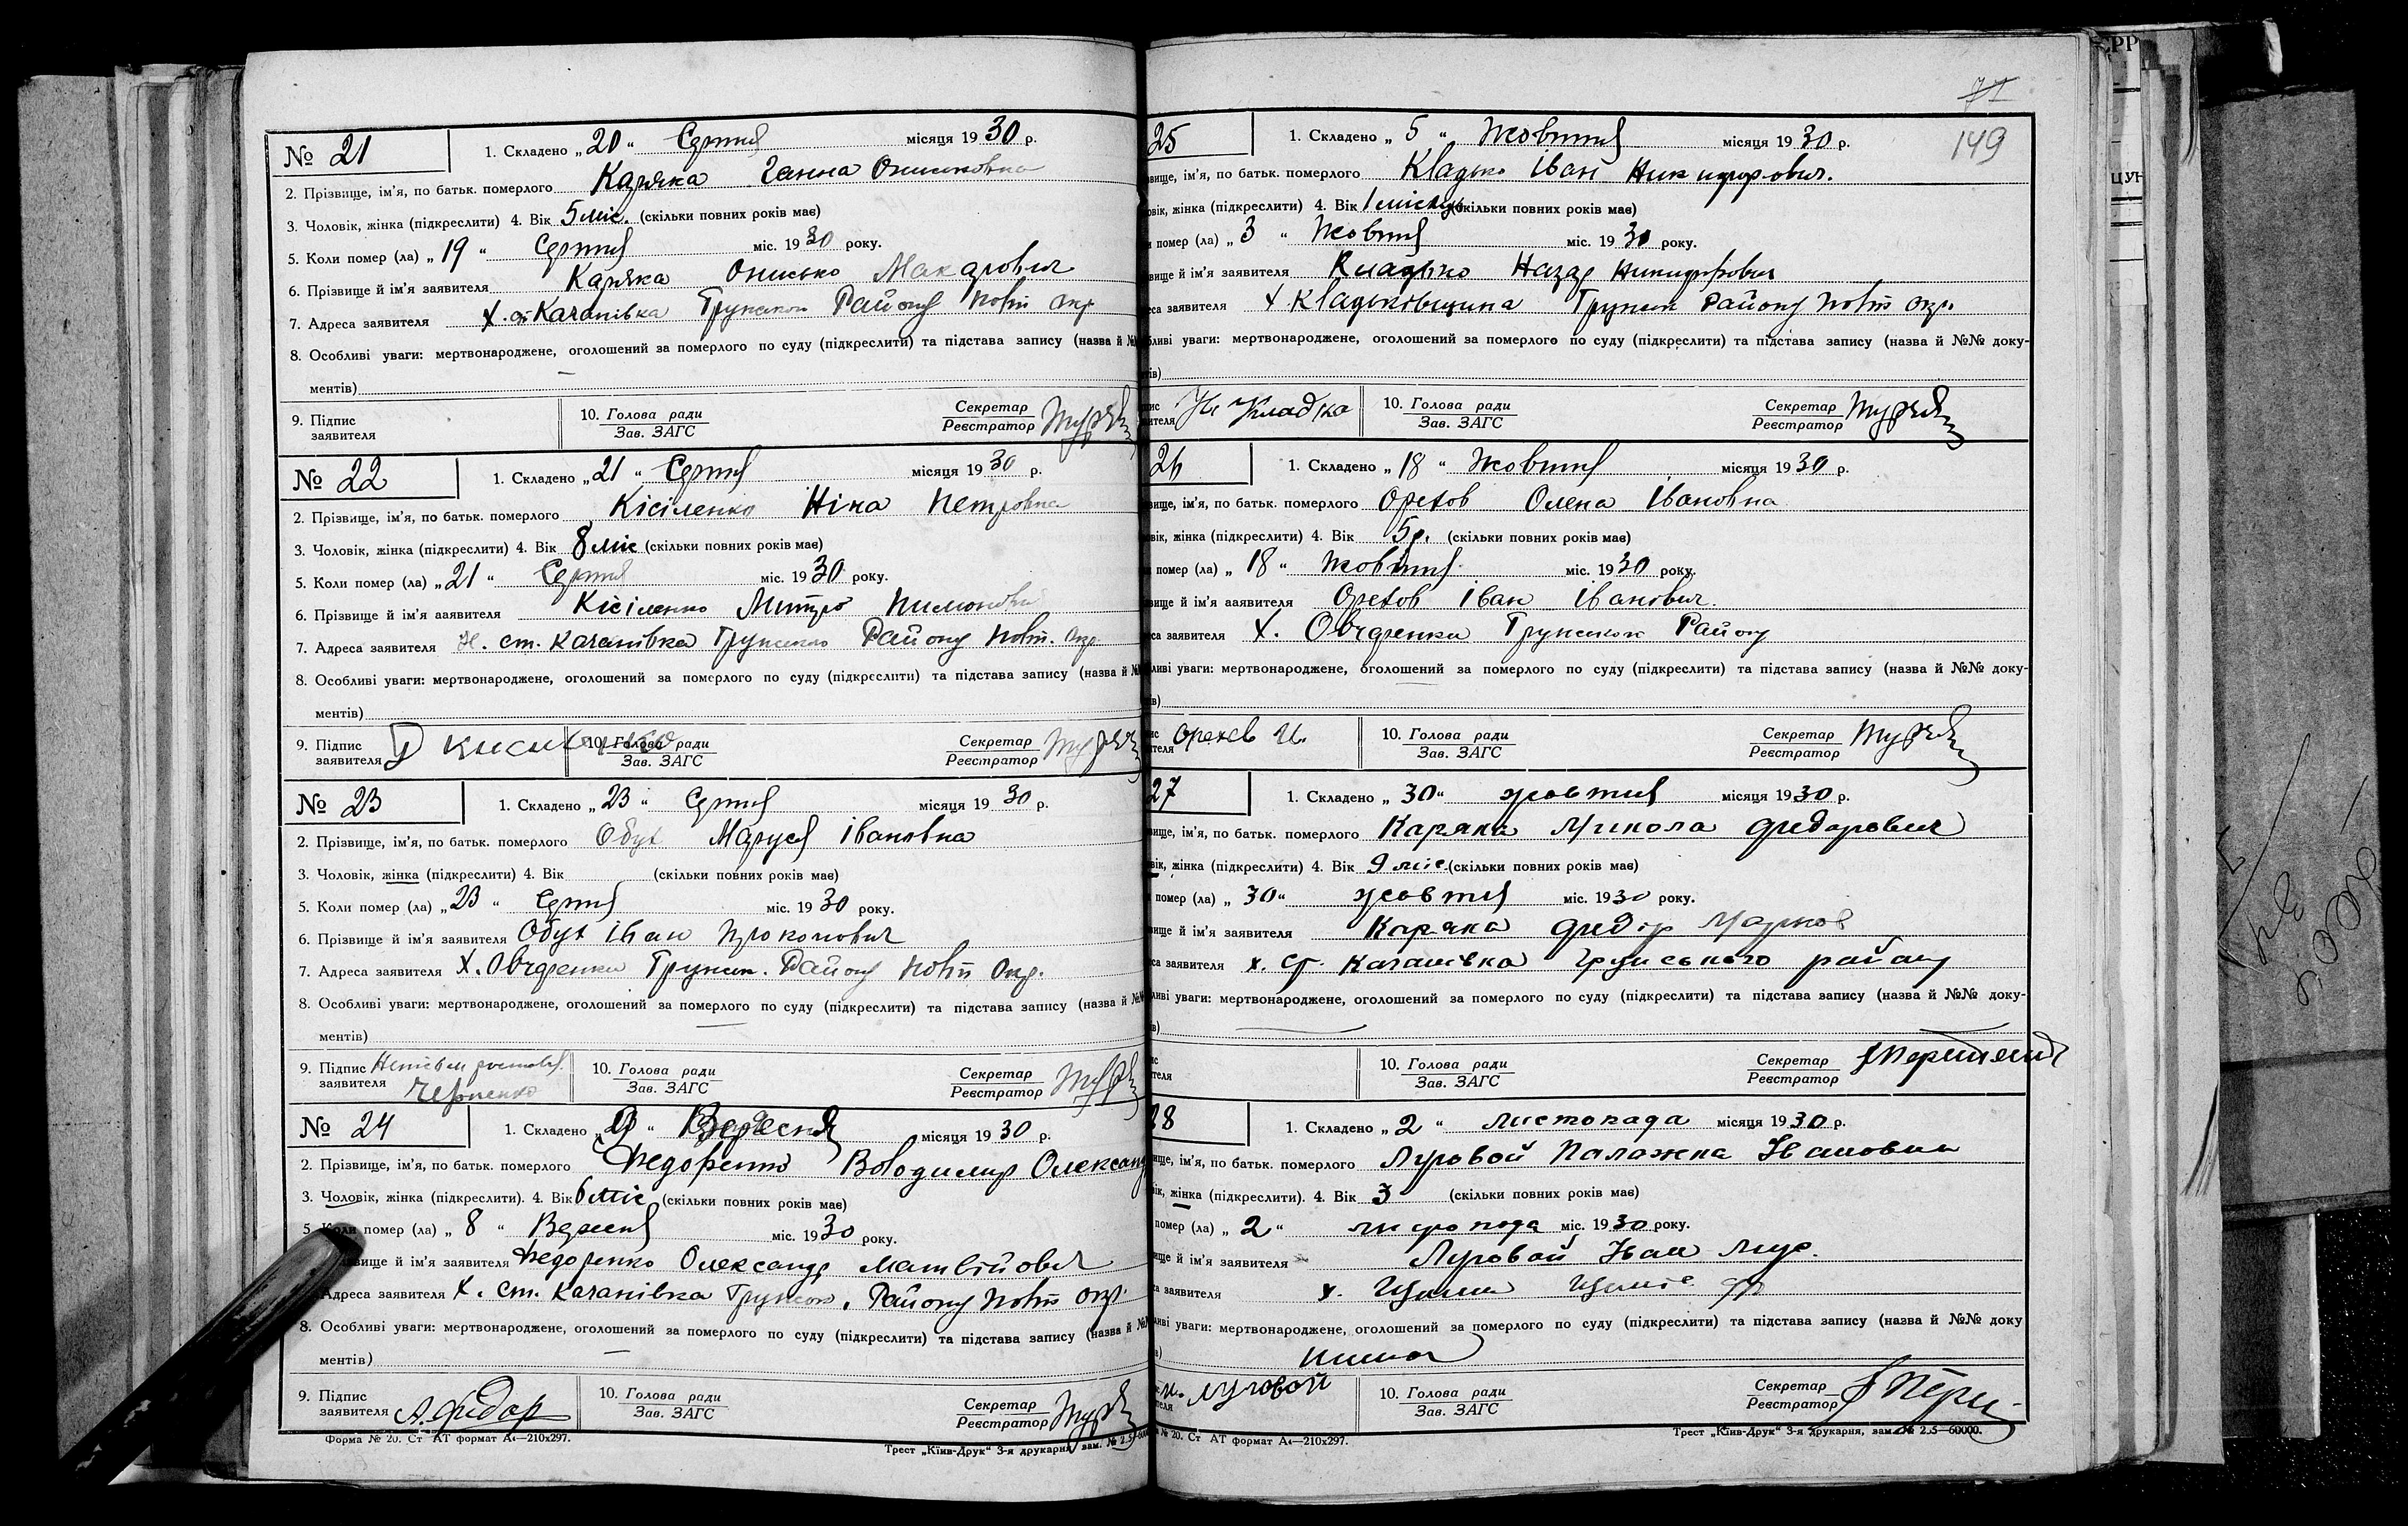 № 21 1. Складено „20“ Серпня місяця 1930 р.
2. Прізвище, ім'я, по батьк. померлого Каряка Ганна Ониськовна
3. Чоловік, жінка (підкреслити) 4. Вік 5 міс. (скільки повних років має)
5. Коли помер (ла) „19“ Серпня міс. 1930 року.
6. Прізвище й ім'я заявителя Каряка Онисько Макарович
7. Адреса заявителя х. ст. Качанівка Грунськ Району Полт Окр
8. Особливі уваги: мертвонароджене, оголошений за померлого по суду (підкреслити) та підстава запису (назва й №
ментів) —
9. Підпис заявителя 10. Голова ради Зав. ЗАГС Секретар Реєстратор
№ 22 1. Складено „21“ Серпня місяця 1930 р.
2. Прізвище, ім'я, по батьк. померлого Кісіленко Ніна Петровна
3. Чоловік, жінка (підкреслити) 4. Вік 8 міс (скільки повних років має)
5. Коли помер (ла) „21“ Серпня міс. 1930 року.
6. Прізвище й ім'я заявителя Кісіленко Митро Пилипович
7. Адреса заявителя Х. ст. Качанівка Грунського Району Полт. Окр.
8. Особливі уваги: мертвонароджене, оголошений за померлого по суду (підкреслити) та підстава запису (назва й №
ментів)
9. Підпис заявителя 10. Голова ради Зав. ЗАГС Секретар Реєстратор
№ 23 1. Складено „23“ Серпня місяця 1930 р.
2. Прізвище, ім'я, по батьк. померлого Обух Маруся Івановна
3. Чоловік, жінка (підкреслити) 4. Вік (скільки повних років має)
5. Коли помер (ла) „23“ Серпня міс. 1930 року.
6. Прізвище й ім'я заявителя Обух Іван Прокопович
7. Адреса заявителя Х. Овчаренки Грунськ. Району Полт Окр.
8. Особливі уваги: мертвонароджене, оголошений за померлого по суду (підкреслити) та підстава запису (назва й №№
ментів) —
9. Підпис заявителя Черненко 10. Голова ради Зав. ЗАГС Секретар Реєстратор
№ 24 1. Складено „9“ Вересня місяця 1930 р.
2. Прізвище, ім'я, по батьк. померлого Федоренко Володимир Олександ
3. Чоловік, жінка (підкреслити). 4. Вік 6 міс (скільки повних років має)
5. Коли помер (ла) „8“ Вересня міс. 1930 року.
вище й ім'я заявителя Федоренко Олександр Матвійович
Адреса заявителя Х. ст. Качанівка Грунськ. Району Полт Окр.
8. Особливі уваги: мертвонароджене, оголошений за померлого по суду (підкреслити) та підстава запису (назва й №
ментів) —
9. Підпис заявителя А. Федор 10. Голова ради Зав. ЗАГС Секретар Реєстратор
Форма № 20. Ст АТ формат А4—210x297.
Трест „Київ-Друк“ 3-я друкарня, зам. № 2
71
149
25 1. Складено „5“ Жовтня місяця 1930 р.
вище, ім'я, по батьк. померлого Кладько Іван Никифорович.
овік, жінка (підкреслити) 4. Вік 1 місяць (скільки повних років має)
и помер (ла) „3“ Жовтня міс. 1930 року.
вище й ім'я заявителя Кладько Назар Никифорович
еса заявителя Х. Кладьківщина Грунськ Району Полт Окр.
бливі уваги: мертвонароджене, оголошений за померлого по суду (підкреслити) та підстава запису (назва й №№ доку-
тів)
пис ителя Н. Кладко 10. Голова ради Зав. ЗАГС Секретар Реєстратор
26 1. Складено „18“ Жовтня місяця 1930 р.
вище, ім'я, по батьк. померлого Орехов Олена Івановна
овік, жінка (підкреслити) 4. Вік 5 р. (скільки повних років має)
и помер (ла) „18“ Жовтня міс. 1930 року.
вище й ім'я заявителя Орехов Іван Іванович.
са заявителя Х. Овчаренки Грунськ Району
ливі уваги: мертвонароджене, оголошений за померлого по суду (підкреслити) та підстава запису (назва й №№ доку-
ів) —
ис теля Орехов И. 10. Голова ради Зав. ЗАГС Секретар Реєстратор
27 1. Складено „30“ жовтня місяця 1930 р.
вище, ім'я, по батьк. померлого Каряка Микола Федорович
вік, жінка (підкреслити) 4. Вік 9 міс. (скільки повних років має)
помер (ла) „30“ жовтня міс. 1930 року.
вище й ім'я заявителя Каряка Федір Марков
са заявителя х. ст. Качанівка Грунського району
ливі уваги: мертвонароджене, оголошений за померлого по суду (підкреслити) та підстава запису (назва й №№ доку-
ів) —
ис теля 10. Голова ради Зав. ЗАГС Секретар Реєстратор
28 1. Складено „2“ листопада місяця 1930 р.
ище, ім'я, по батьк. померлого Луговой Палажка Ивановна
вік, жінка (підкреслити). 4. Вік 3 (скільки повних років має)
помер (ла) „2“ листопада міс. 1930 року.
ище й ім'я заявителя Луговой Иван
са заявителя х.
ливі уваги: мертвонароджене, оголошений за померлого по суду (підкреслити) та підстава запису (назва й №№ доку
в)
теля И. Луговой 10. Голова ради Зав. ЗАГС Секретар Реєстратор
№ 20. Ст АТ формат А4—210x297.
Трест „Київ-Друк“ 3-я друкарня, зам. № 255—60000.